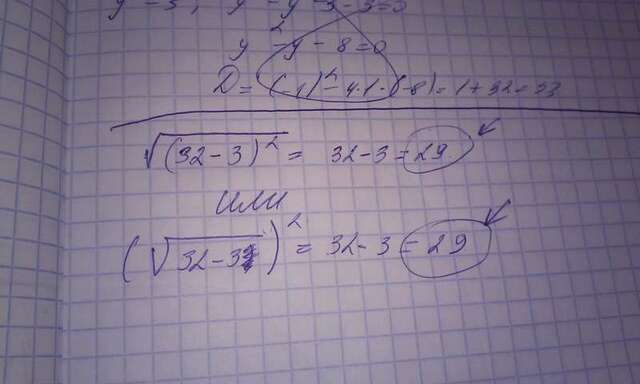 y² - y - 8 = 0
D = (-1)² - 4·1·(-8) = 1 + 32 = 33
√(32-3)² = 32-3 = 29
или
(√32-3)² = 32-3 = 29